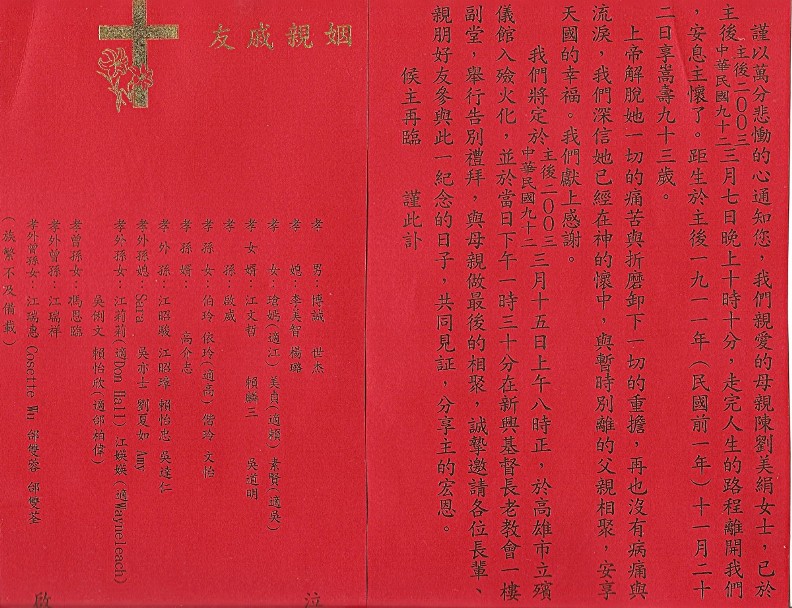 謹以萬分悲慟的心通知您，我們親愛的母親陳劉美絹女士，已於
主後二００三
中華民國九十二三月七日晚上十時十分，走完人生的路程離開我們
，安息主懷了。距生於主後一九一一年（民國前一年）十一月二十
二日享嵩壽九十三歲。
上帝解脫她一切的痛苦與折磨卸下一切的重擔，再也沒有病痛與
流淚，我們深信她已經在神的懷中，與暫時別離的父親相聚，安享
天國的幸福。我們獻上感謝。
我們將定於主後二００三
中華民國九十二三月十五日上午八時正，於高雄市立殯
儀館入殮火化，並於當日下午一時三十分在新興基督長老教會一樓
副堂，舉行告別禮拜，與母親做最後的相聚，誠摯邀請各位長輩、
親朋好友參與此一紀念的日子，共同見証，分享主的宏恩。
侯主再臨　謹此訃
姻親戚友
孝　男：博誠　世杰
孝　媳：李美智　楊璐
孝　女：瓊嫣（適江）美貞（適賴）素賢（適吳）
孝女婿：江文哲　賴聰三　吳道明
孝　孫：啟威
孝孫女：伯玲　依玲（適高）偕玲　文怡
孝孫婿：高介志
孝外孫：江昭毅　江昭璋　賴怡忠　吳達仁
孝外孫媳：Sana　吳亦士　劉夏如　Amy
孝外孫女：江莉莉（適Don Hall）江媖媖（適Wayneleach）
吳俐文　賴怡欣（適邰柏偉）
孝曾孫女：馮恩臨
孝外曾孫：江瑞祥
孝外曾孫女：江瑞惠（Cosette Wu）邰雙蓉　邰雙荃
（族繁不及備載）
泣
啟